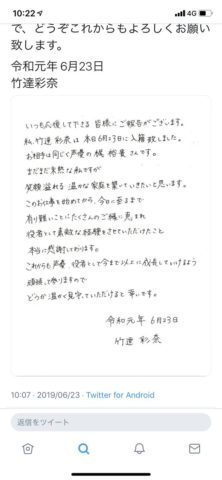 10:22
4G
で、どうぞこれからもよろしくお願い
致します。
令和元年6月23日
竹達彩奈
いつも応援して下さる 皆様にご報告がございます。
私、竹達 彩奈 は 本日6月23日に入籍致しました。
お相手は同じく声優の 梶 裕貴 さんです。
まだまだ未熟な私ですが
笑顔溢れる 温かな家庭を築いていきたいと思います。
このお仕事を始めてから、今日に至るまで
有り難いことにたくさんのご縁に恵まれ
役者として素敵な経験をさせていただけたこと
本当に感謝しております。
これからも声優、役者として今まで以上に成長していけるよう
頑張って参りますので
どうか温かく見守っていただけると幸いです。
令和元年 6月23日
竹達 彩奈
10:07・2019/06/23・Twitter for Android
返信をツイート